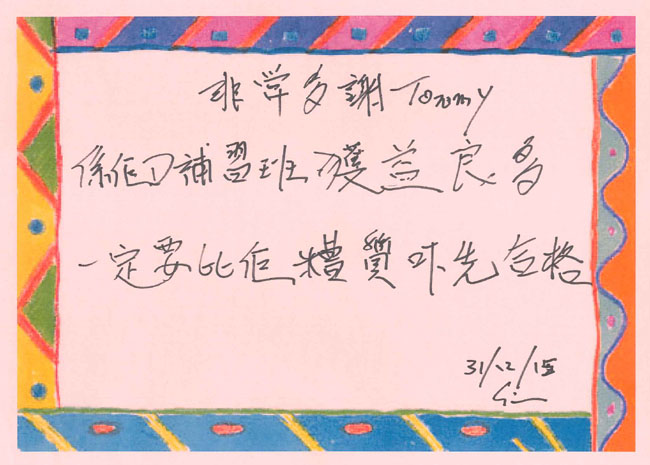 非常多謝 Tommy
係佢D補習班獲益良多
一定要比佢糟質吓先合格
31/12/15